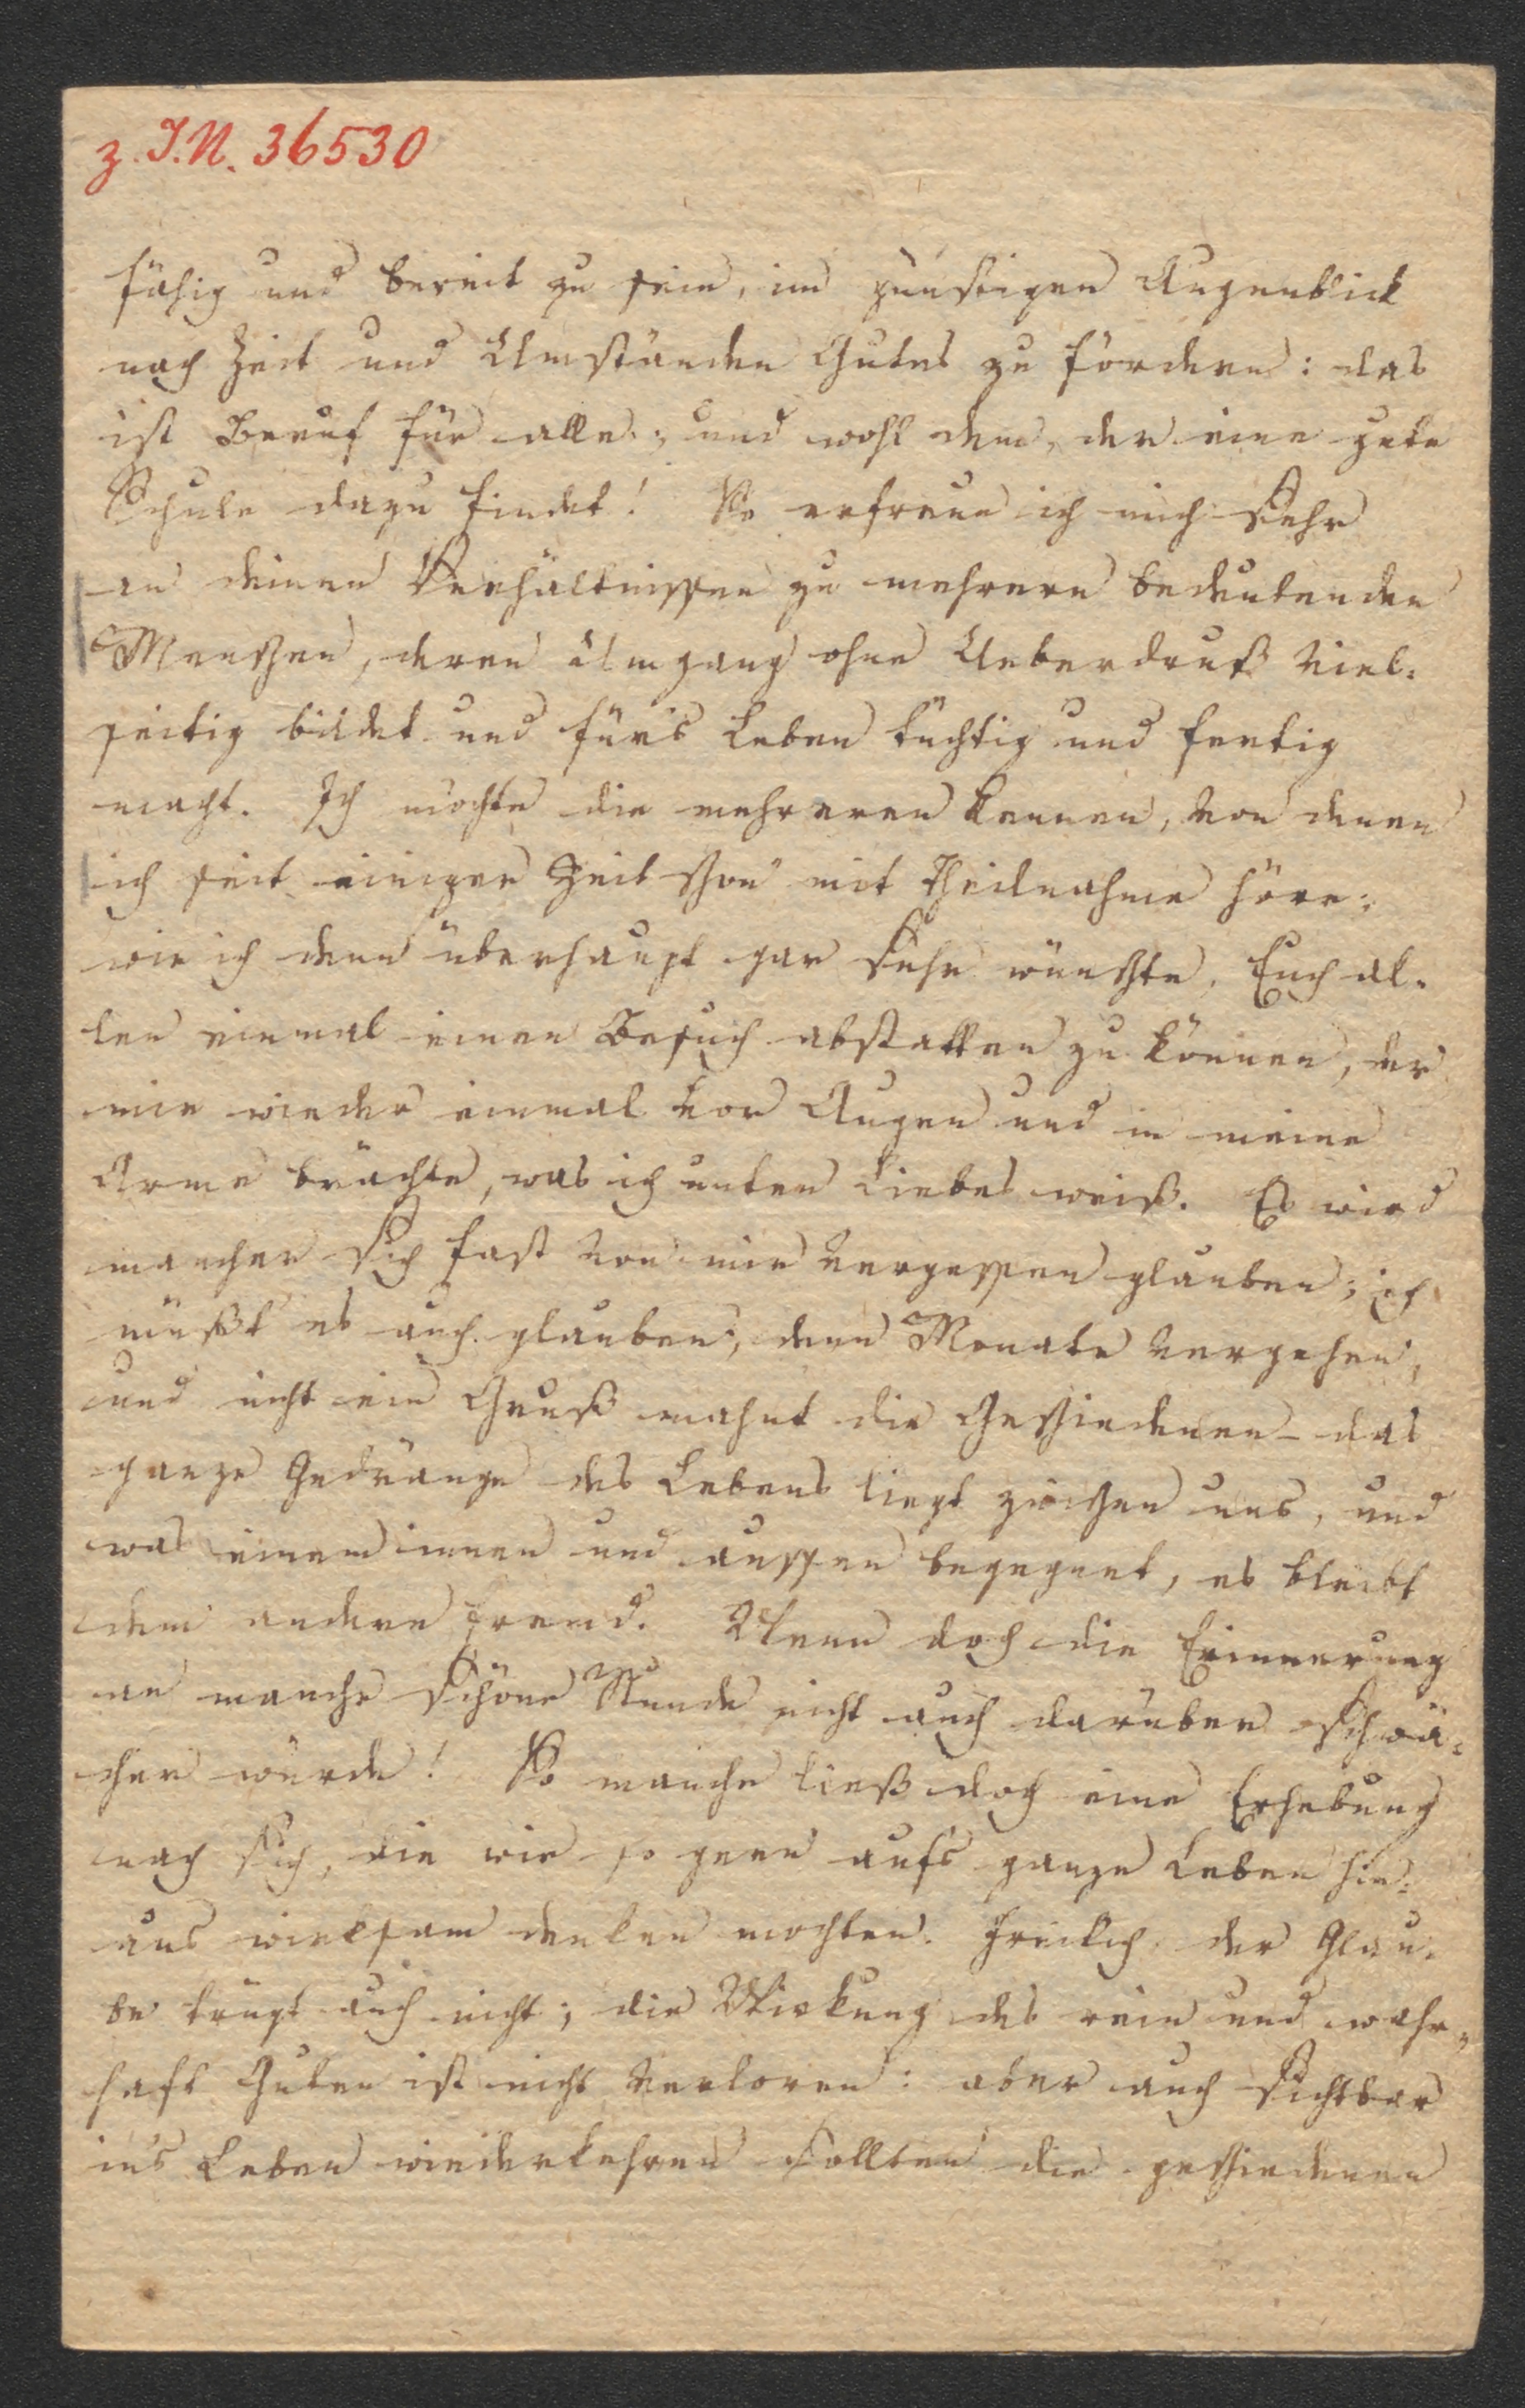 z. I.N. 36530
fähig und bereit zu sein, im günstigen Augenblick
nach Zeit und Umständen Gutes zu fördern: das
ist Beruf für alle; und wohl dem, der eine gute
Schule dazu findet! So erfreue ich mich sehr
an deinen Verhältnissen zu mehrern bedeutenden
Menschen, deren Umgang ohne Ueberdruß viel=
seitig bildet und für's Leben tüchtig und fertig
macht. Ich möchte die mehreren kennen, von denen
ich seit einiger Zeit schon mit Theilnahme höre;
wie ich denn überhaupt gar sehr wünschte, Euch al=
len einmal einen Besuch abstatten zu können, der
mir wieder einmal vor Augen und in meine
Arme brächte, was ich unten Liebes weiß. Es wird
mancher sich fast von mir vergessen glauben; ich
müßt es auch glauben; denn Monate vergehen,
und nicht ein Gruß mahnt die Geschiedenen – das
ganze Gedränge des Lebens liegt zwischen uns, und
was einem innen und aussen begegnet, es bleibt
dem andern fremd. Wenn doch die Erinnerung
an manche schöne Stunde nicht auch darüber schwä=
cher würde! So manche ließ doch eine Erhebung
nach sich, die wir so gern aufs ganze Leben hin=
aus wirksam denken mochten. Freilich der Glau=
be trügt auch nicht; die Wirkung des rein und wahr=
haft Guten ist nicht verloren: aber auch sichtbar
ins Leben wiederkehren sollten die geschiedenen